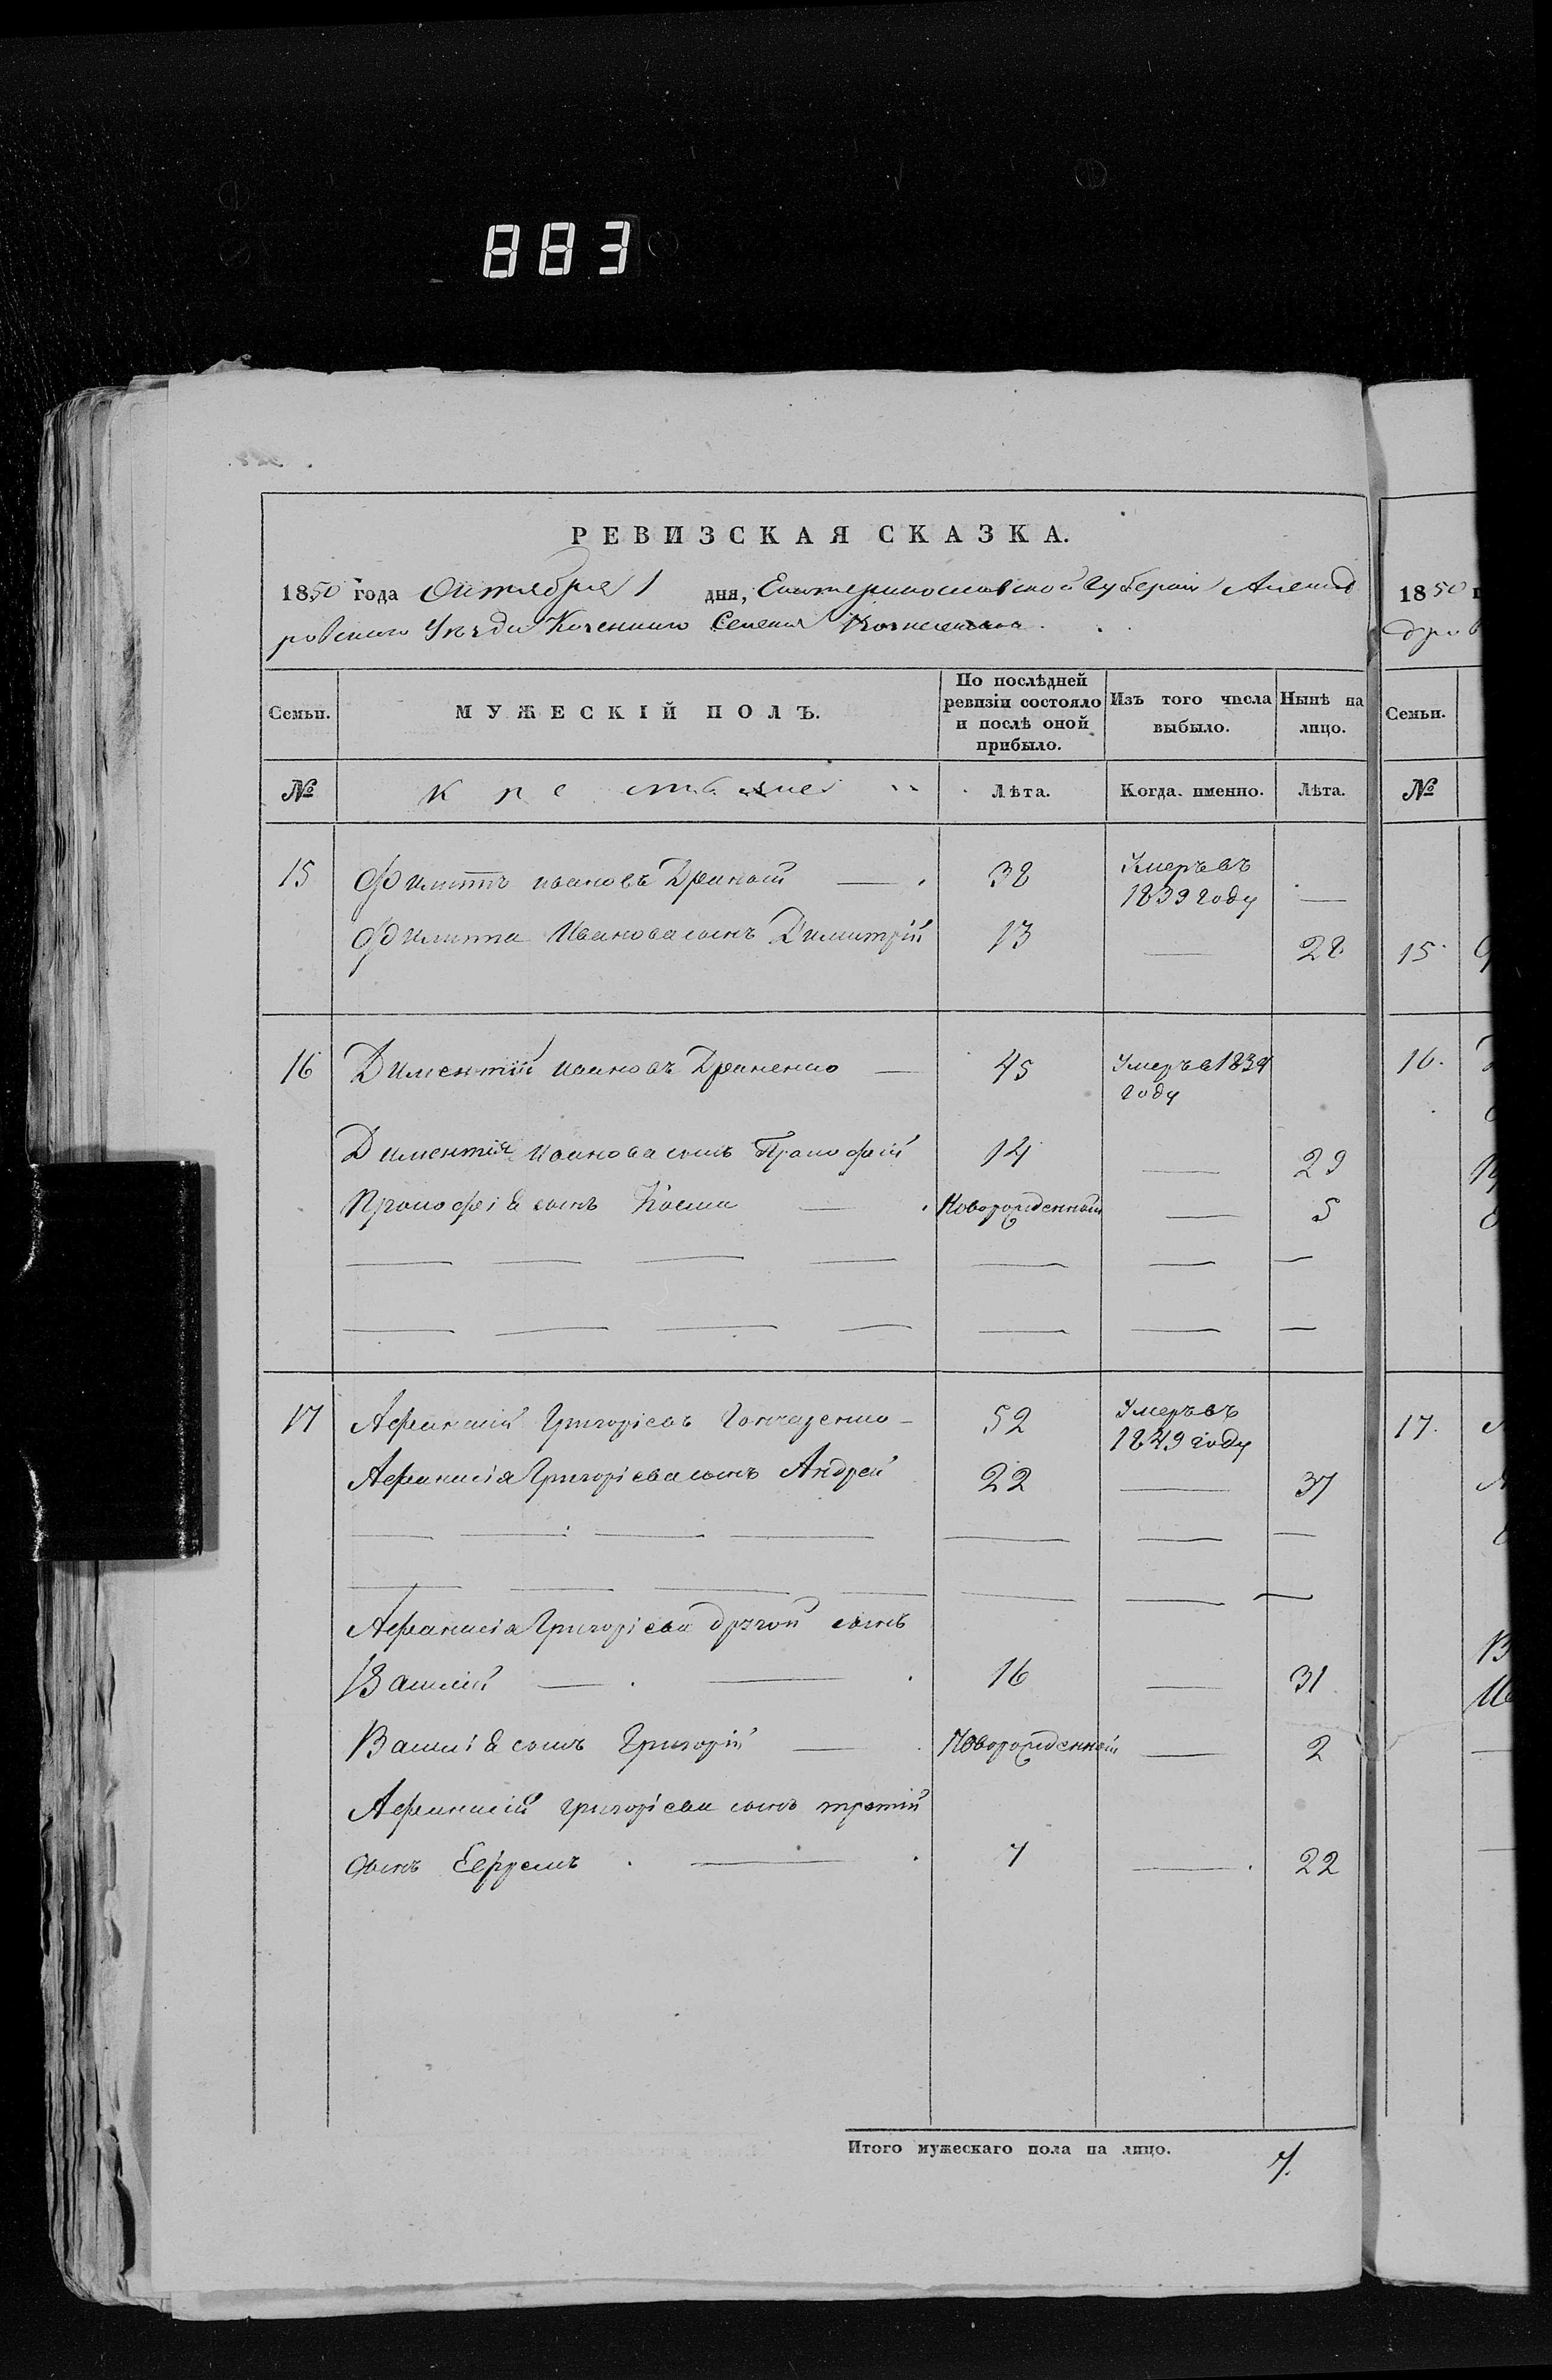 883
РЕВИЗСКАЯ СКАЗКА.
1850 года Октября 1 дня, Екатеринославской Губернии Александ
ровскаго Уезда Казеннаго Селения
Семьи.
МУЖЕСКІЙ ПОЛЪ.
По послѣдней ревизіи состояло и послѣ оной прибыло.
Изъ того числа выбыло.
Нынѣ на лицо.
№
Лѣта.
Когда именно.
Лѣта.
15 Филиппъ Ивановъ 38 Умеръ въ 1839 году —
Филиппа Иванова сынъ Димитрій 13 — 28
16 Диментій Ивановъ 45 Умеръ в 1839 году
Диментія Иванова сынъ Прокофій 14 — 29
Прокофія сынъ Косма — Новорожденный — 5
17 Афанасій Григорієвъ Гончаренко — 52 Умеръ въ 1849 году
Афанасія Григорієва сынъ Андрей 22 — 37
Афанасія Григорієва другой сынъ
Василій — 16 — 31
Василія сынъ Григорій — Новорожденный — 2
Афанасій Григорієва сынъ третій
сынъ Ефремъ — 7 — 22
Итого мужескаго пола на лицо. 7.
1850
дров
Семьи.
№
15.
16.
17.